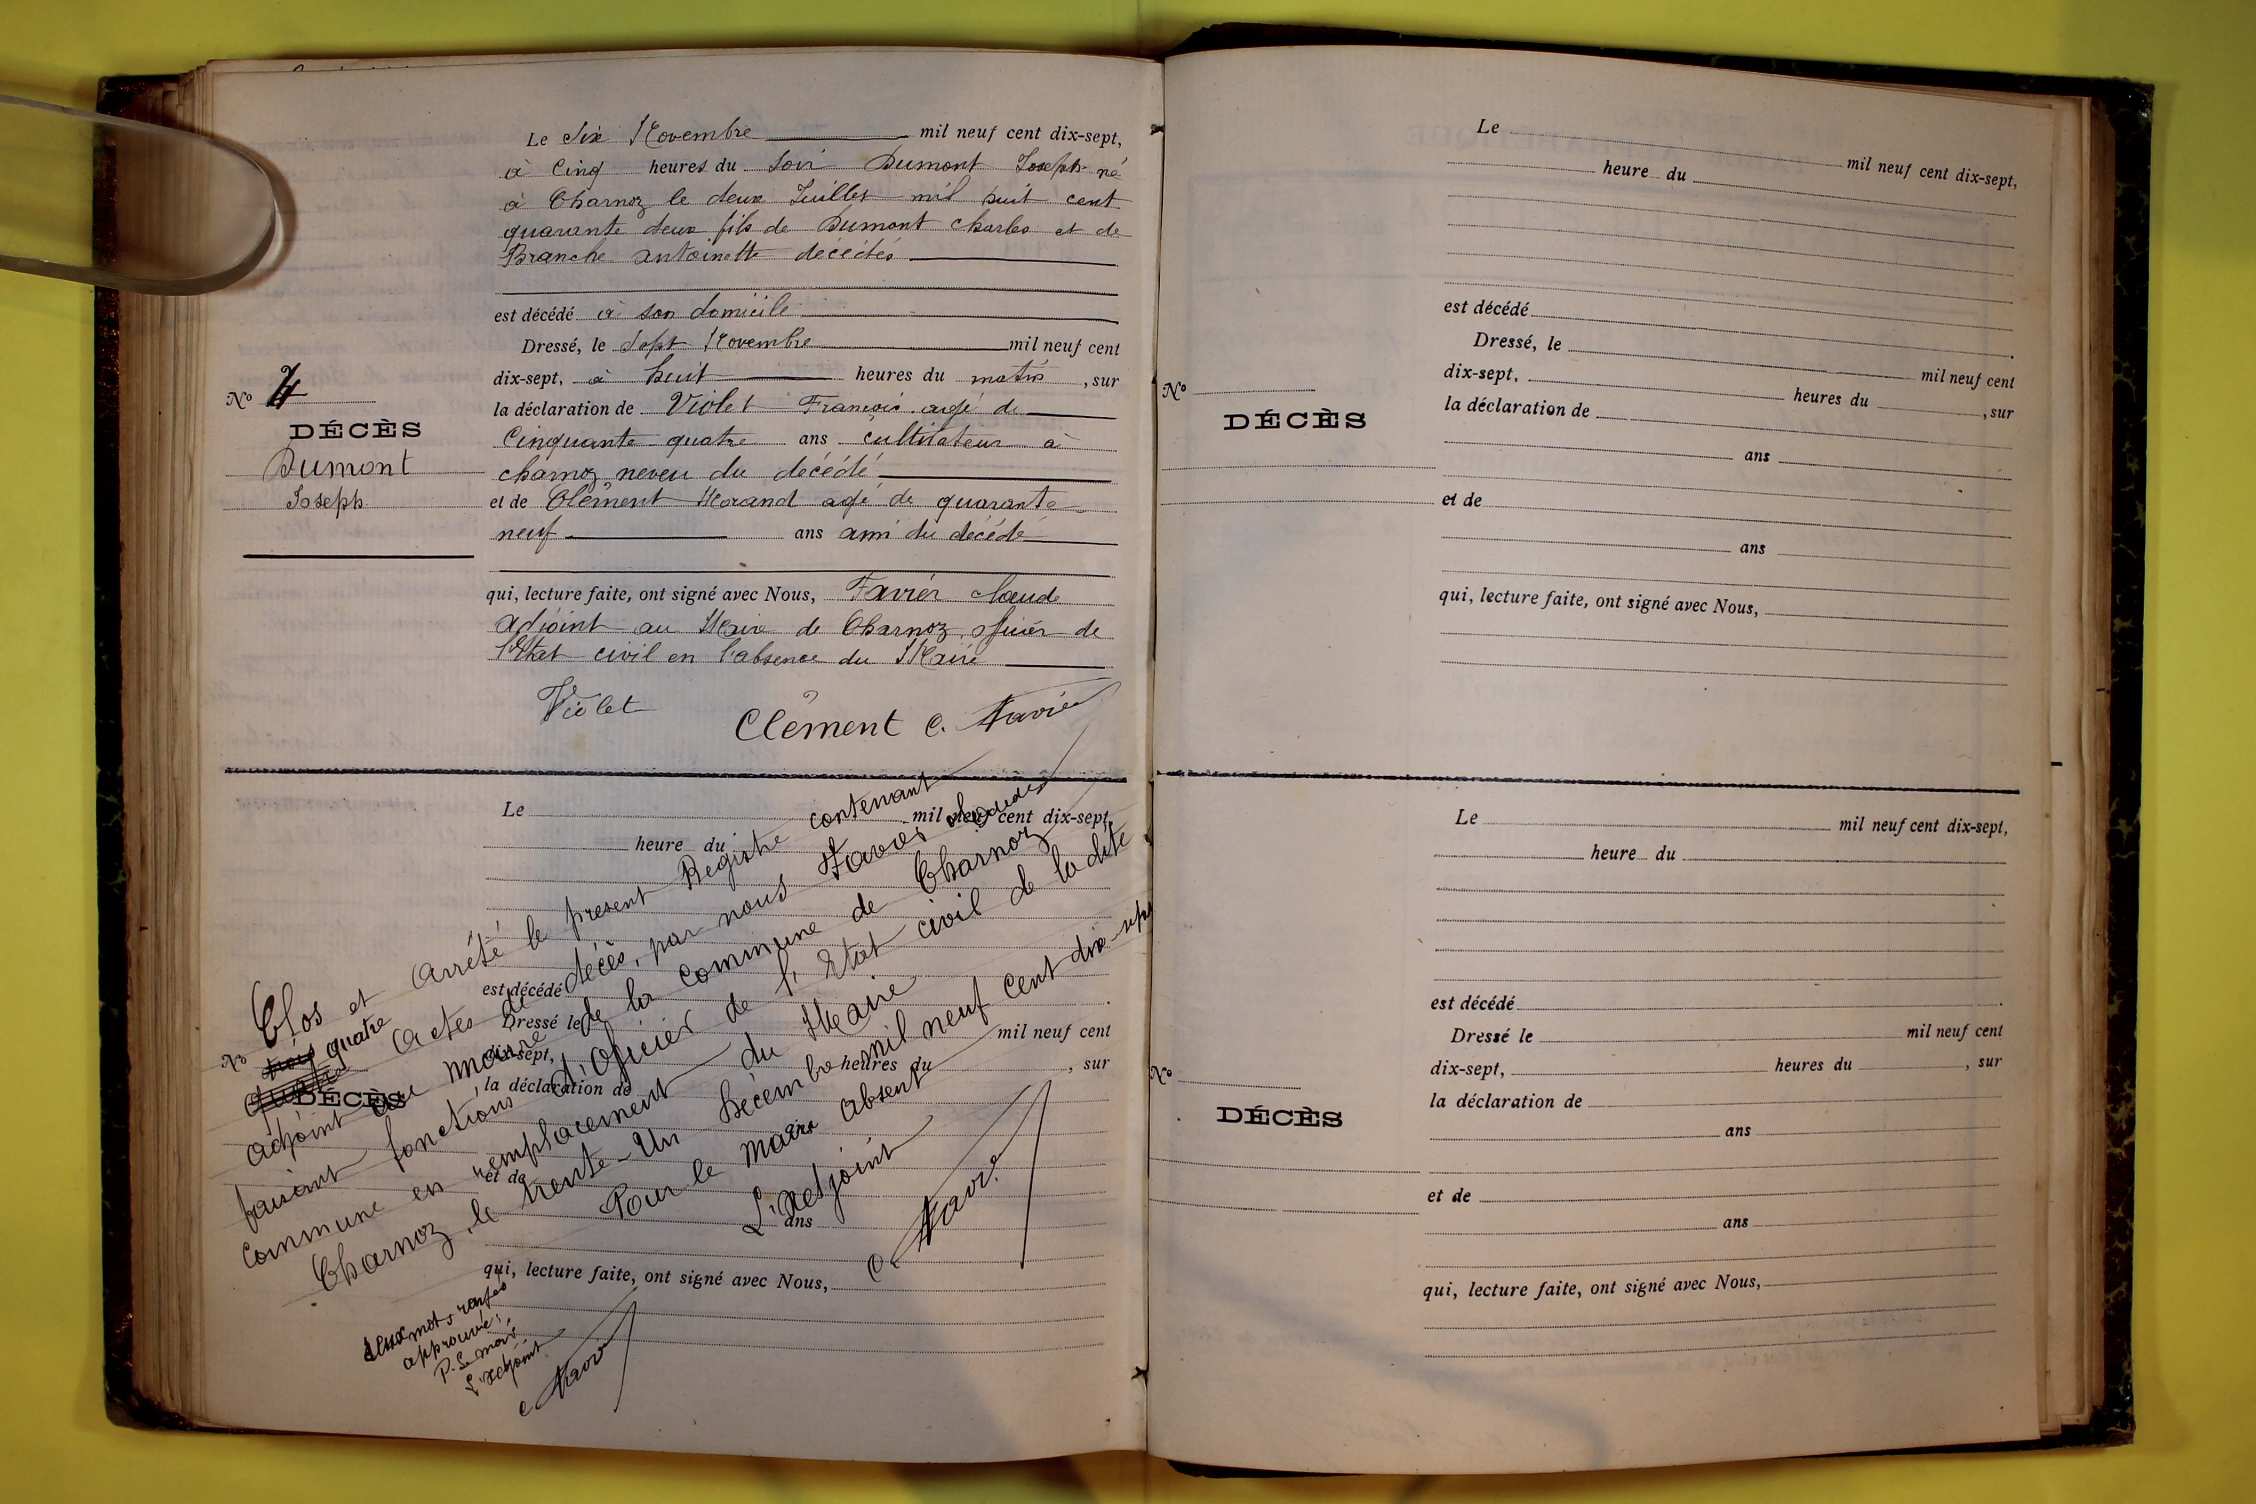 Le Six Novembre mil neuf cent dix-sept,
à Cinq heures du Soir Dumont Joseph né
à Charnoz le deux Juillet mil huit cent
quarante deux fils de Dumont Charles et de
Branche Antoinette décédés
est décédé à son domicile
Dressé, le Sept Novembre mil neuf cent
dix-sept, à huit heures du matin, sur
la déclaration de Violet François agé de
Cinquante quatre ans cultivateur à
charnoz neveu du décédé
et de Clément Morand agé de quarante
neuf ans ami du décédé
qui, lecture faite, ont signé avec Nous, Favier Claude
Adjoint au Maire de Charnoz, officier de
l'Etat civil en l'absence du Maire
Violet Clément C. Favier
No 4
DÉCÈS
Dumont
Joseph
Le mil neuf cent dix-sept,
heure du
est décédé
Dressé le mil neuf cent
dix-sept, heures du , sur
la déclaration de
et de
ans
qui, lecture faite, ont signé avec Nous,
No
DÉCÈS
Clos et arrêté le present Registre contenant
trois quatre actes de décès, par nous Favier Claude
adjoint au maire de la commune de Charnoz
faisant fonctions d'officier de l'Etat civil de la dite
commune en remplacement du Maire
Charnoz, le trente-Un Décembre mil neuf cent dix-sept
Pour le maire absent
L'adjoint
C. Favier
deux mots rayés
approuvé;
P. Le maire
L'adjoint
C Favier
Le mil neuf cent dix-sept,
heure du
est décédé
Dressé, le mil neuf cent
dix-sept, heures du , sur
la déclaration de
ans
et de
ans
qui, lecture faite, ont signé avec Nous,
No
DÉCÈS
Le mil neuf cent dix-sept,
heure du
est décédé
Dressé le mil neuf cent
dix-sept, heures du , sur
la déclaration de
ans
et de
ans
qui, lecture faite, ont signé avec Nous,
No
DÉCÈS